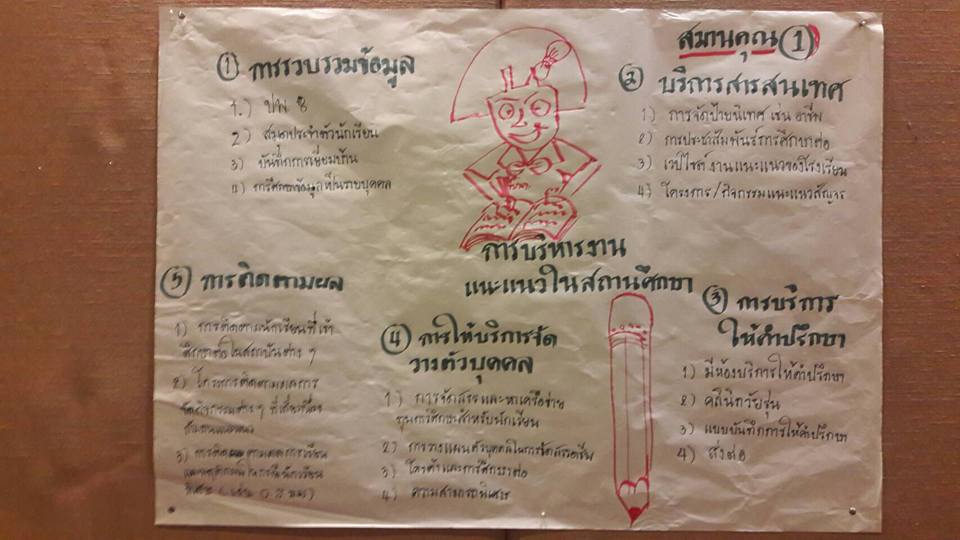 สมานคุณ ①
① การรวบรวมข้อมูล
1.) ปพ 8
2) สมุดประจำตัวนักเรียน
3) บันทึกการเยี่ยมบ้าน
4) การศึกษาข้อมูลเป็นรายบุคคล
② บริการสารสนเทศ
1) การจัดป้ายนิเทศ เช่น อาชีพ
2) การประชาสัมพันธ์การศึกษาต่อ
3) เวปไซต์งานแนะแนวของโรงเรียน
4) โครงการ/กิจกรรมแนะแนวสัญจร
การบริหารงาน
แนะแนวในสถานศึกษา
③ การบริการ
ให้คำปรึกษา
1) มีห้องบริการให้คำปรึกษา
2) คลินิกวัยรุ่น
3) แบบบันทึกการให้คำปรึกษา
4) ส่งต่อ
④ การให้บริการจัด
วางตัวบุคคล
1) การจัดสรรและหาเครือข่าย
ทุนการศึกษาสำหรับนักเรียน
2) การวางแผนตัวบุคคลในการ
3) โควต้าและการศึกษาต่อ
4) ความสามารถพิเศษ
⑤ การติดตามผล
1) การติดตามนักเรียนที่เข้า
ศึกษาต่อในสถาบันต่าง ๆ
2) โครงการติดตามผลการ
จัดกิจกรรมต่าง ๆ ที่เกี่ยวข้อง
3) การติดตามผลการเรียน